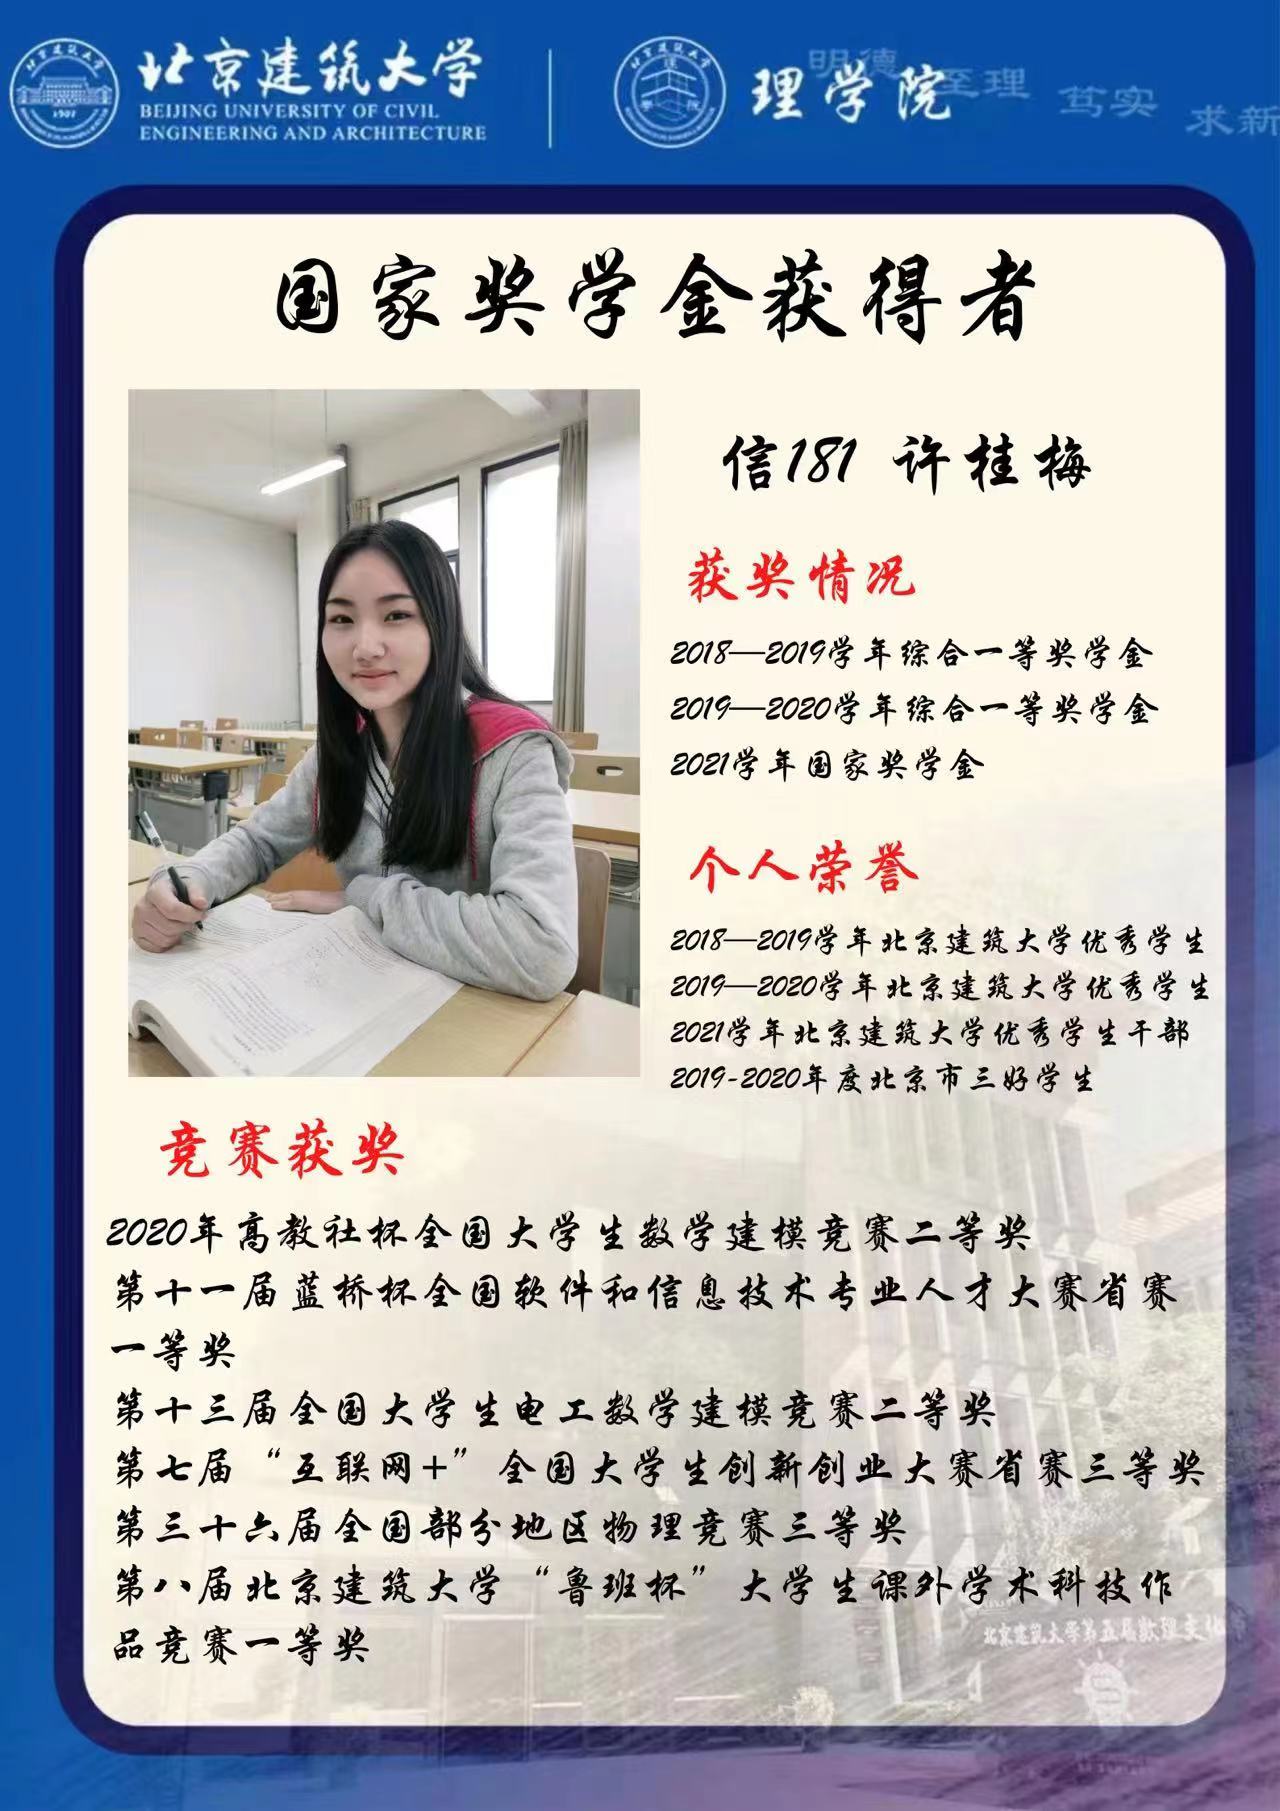 北京建筑大学
BEIJING UNIVERSITY OF CIVIL
ENGINEERING AND ARCHITECTURE
1907
理学院
明德 至理 笃实 求新
国家奖学金获得者
信181 许桂梅
获奖情况
2018—2019学年综合一等奖学金
2019—2020学年综合一等奖学金
2021学年国家奖学金
个人荣誉
2018—2019学年北京建筑大学优秀学生
2019—2020学年北京建筑大学优秀学生
2021学年北京建筑大学优秀学生干部
2019-2020年度北京市三好学生
竞赛获奖
2020年高教社杯全国大学生数学建模竞赛二等奖
第十一届蓝桥杯全国软件和信息技术专业人才大赛省赛
一等奖
第十三届全国大学生电工数学建模竞赛二等奖
第七届“互联网+”全国大学生创新创业大赛省赛三等奖
第三十六届全国部分地区物理竞赛三等奖
第八届北京建筑大学“鲁班杯”大学生课外学术科技作
品竞赛一等奖
北京建筑大学第五届数理文化节